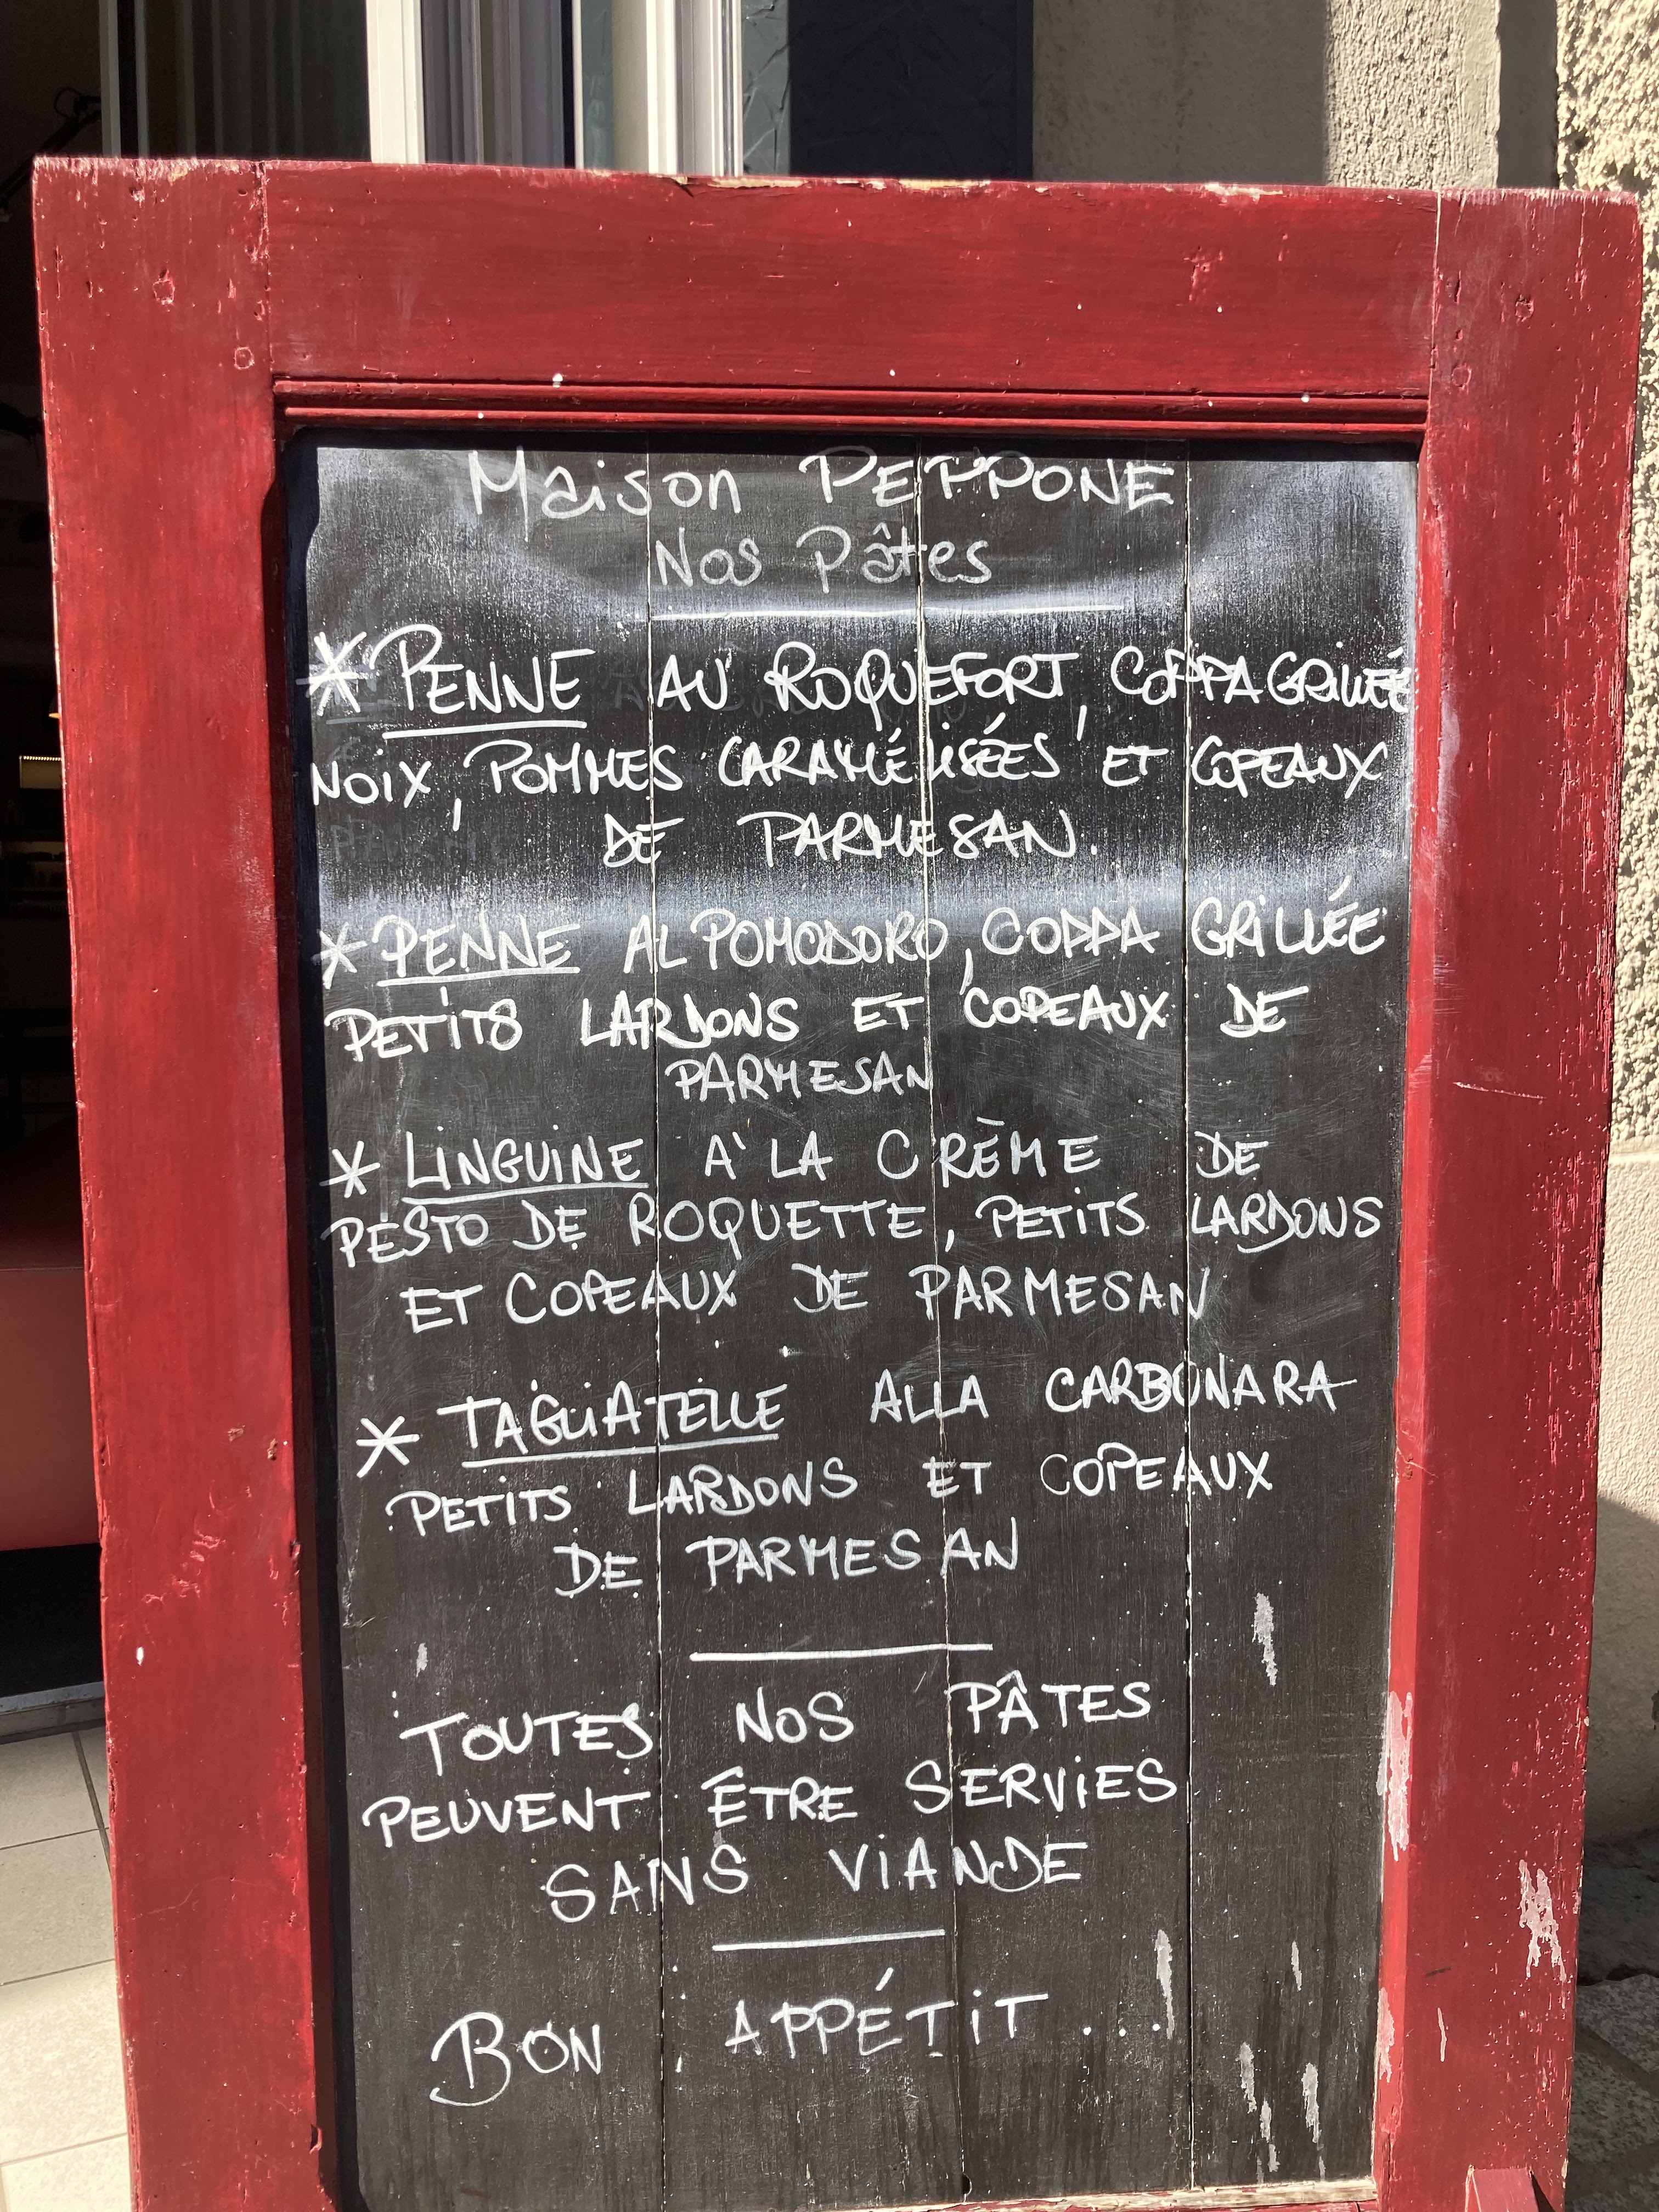 Maison PEPPONE
Nos Pâtes
* PENNE AU ROQUEFORT, COPPA GRILLÉE
NOIX, POMMES CARAMÉLISÉES ET COPEAUX
DE PARMESAN.
* PENNE AL POMODORO, COPPA GRILLÉE
PETITS LARDONS ET COPEAUX DE
PARMESAN
* LINGUINE À LA CRÈME DE
PESTO DE ROQUETTE, PETITS LARDONS
ET COPEAUX DE PARMESAN
* TAGLIATELLE ALLA CARBONARA
PETITS LARDONS ET COPEAUX
DE PARMESAN
TOUTES NOS PÂTES
PEUVENT ÊTRE SERVIES
SANS VIANDE
BON APPÉTIT ...